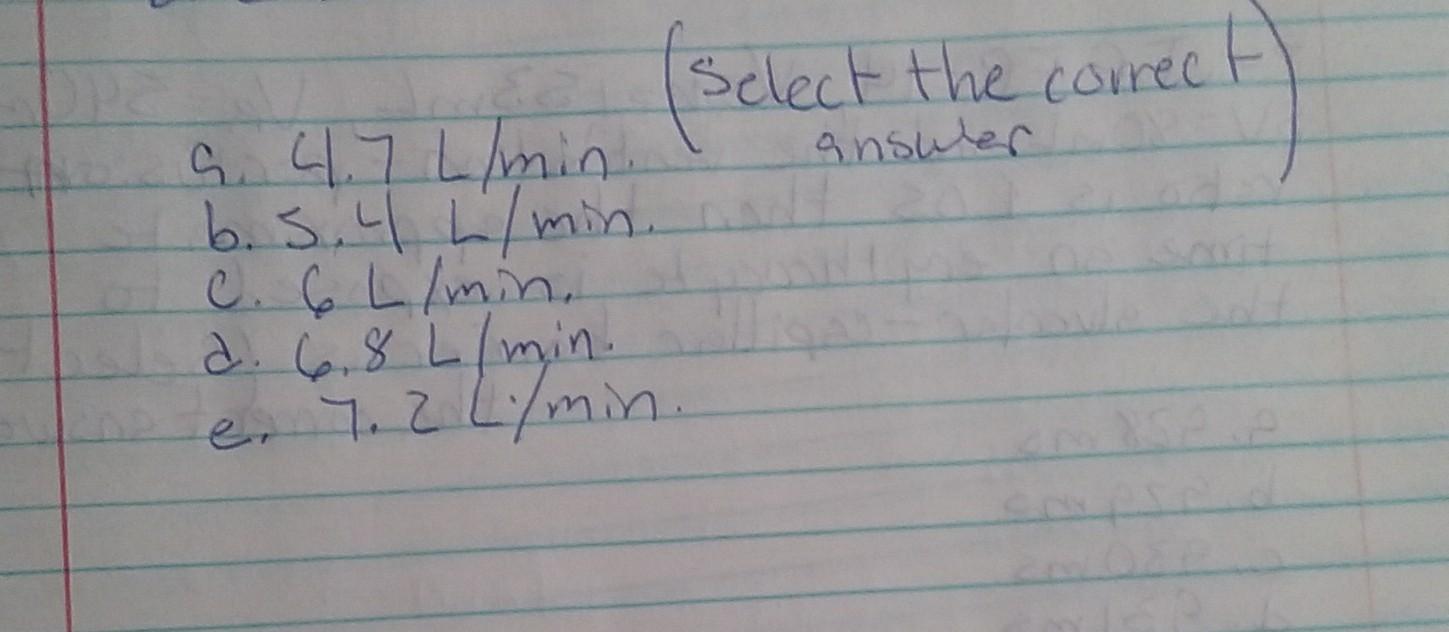 (Select the correct
answer)
a. 4.7 L/min.
b. 5.4 L/min.
c. 6 L/min.
d. 6.8 L/min.
e. 7.2 L/min.